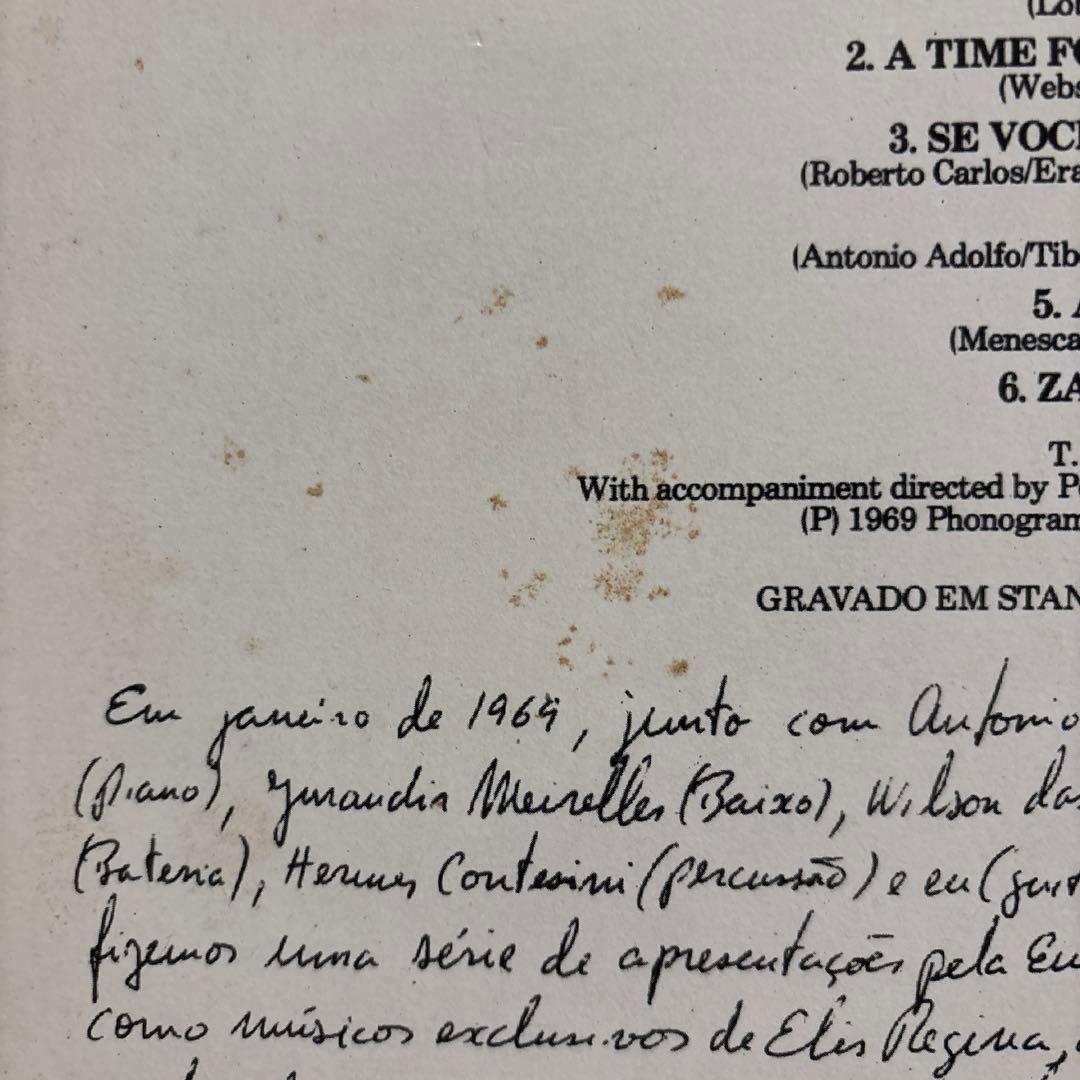 (Lob
2. A TIME FO
(Webs
3. SE VOCÊ
(Roberto Carlos/Era
(Antonio Adolfo/Tib
5. A
(Menesca
6. ZA
T.
With accompaniment directed by P
(P) 1969 Phonogram
GRAVADO EM STAN
Em janeiro de 1969, junto com Antonio
(piano), Jurandir Meirelles (Baixo), Wilson das
(Bateria), Hermes Contesini (percussão) e eu (guit
fizemos uma série de apresentações pela Eu
como músicos exclusivos de Elis Regina,